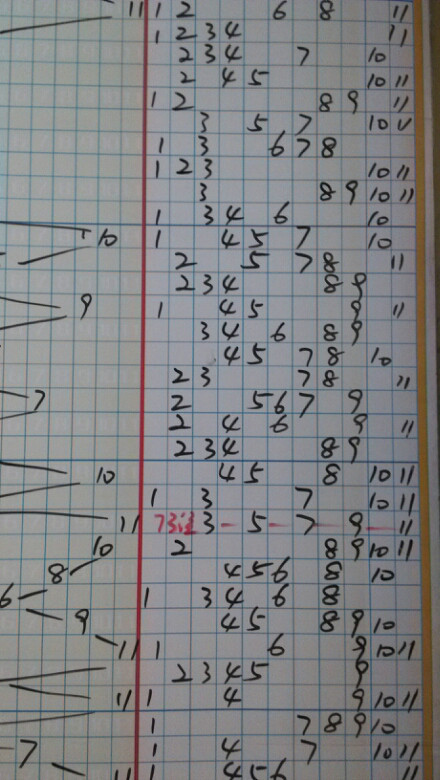 11 1 2 6 8 11
1 2 3 4 11
2 3 4 7 10
2 4 5 10 11
1 2 8 9 11
3 5 7 10 11
1 3 6 7 8
1 2 3 10 11
3 8 9 10 11
1 3 4 6 10
10 1 4 5 7 10
2 5 7 8 11
2 3 4 8 9
9 1 4 5 9 11
3 4 6 8 9
4 5 7 8 10
2 3 7 8 11
7 2 5 6 7 9
2 4 6 9 11
2 3 4 8 9
10 4 5 8 10 11
1 3 7 10 11
11 3 - 5 - 7 - 9 - 11
10 2 8 9 10 11
8 4 5 6 8 10
6 1 3 4 6 8
9 4 5 8 9 10
11 1 6 9 10 11
2 3 4 5 9
11 1 4 9 10 11
1 7 8 9 10
7 1 4 7 10 11
11 1 4 5 6 8 11